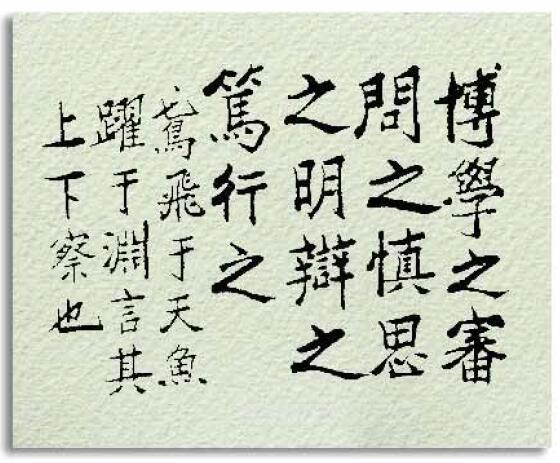 博學之審
問之慎思
之明辯之
篤行之
鳶飛于天魚
躍于淵言其
上下察也